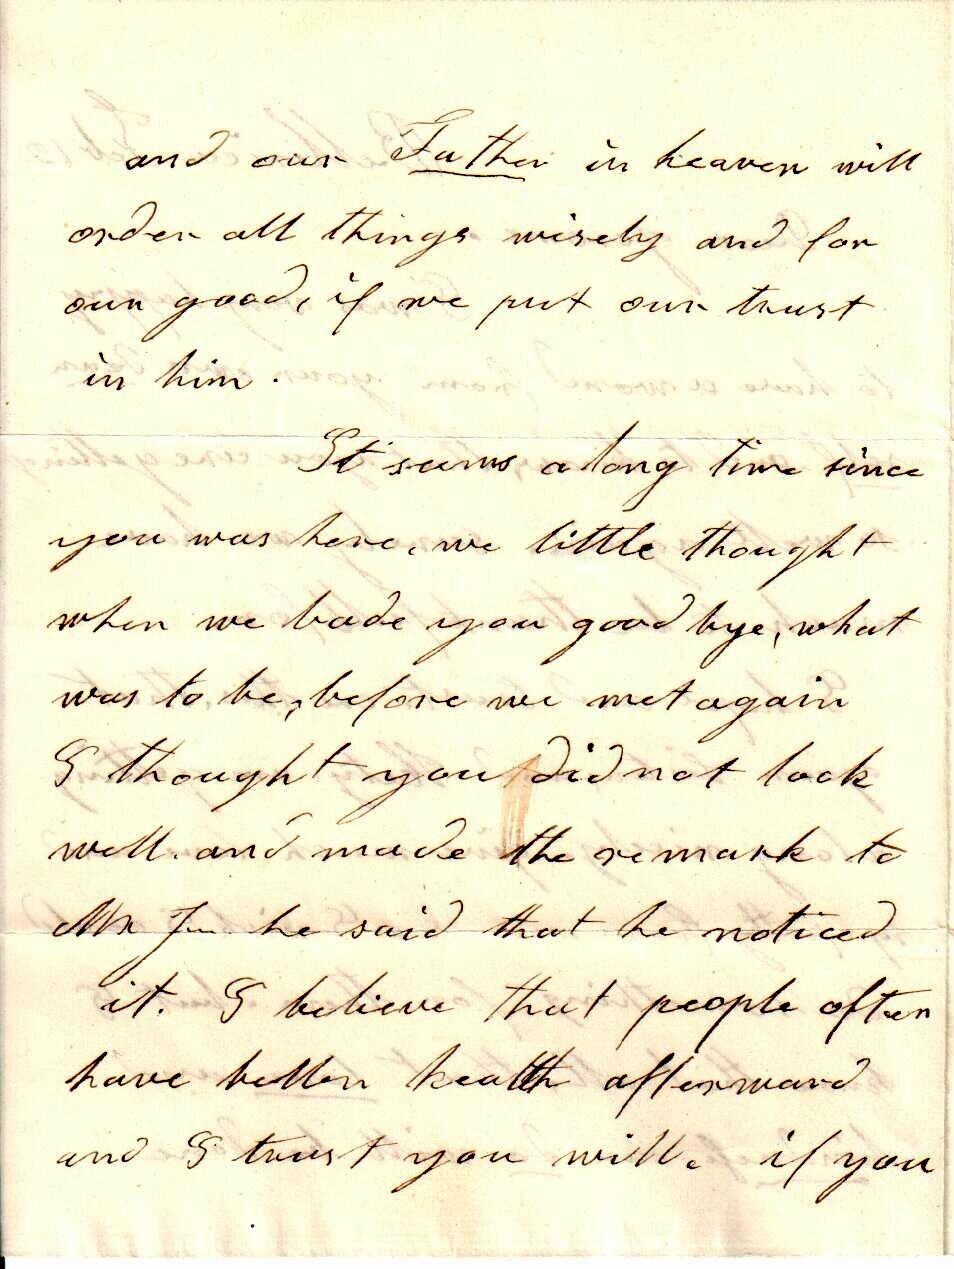 and our Father in heaven will
order all things wisely and for
our good, if we put our trust
in him.
It seems a long time since
you was here, we little thought
when we bade you good bye, what
was to be, before we met again
I thought you did not look
well. and made the remark to
Mr he said that he noticed
it. I believe that people often
have better health afterward
and I trust you will. if you